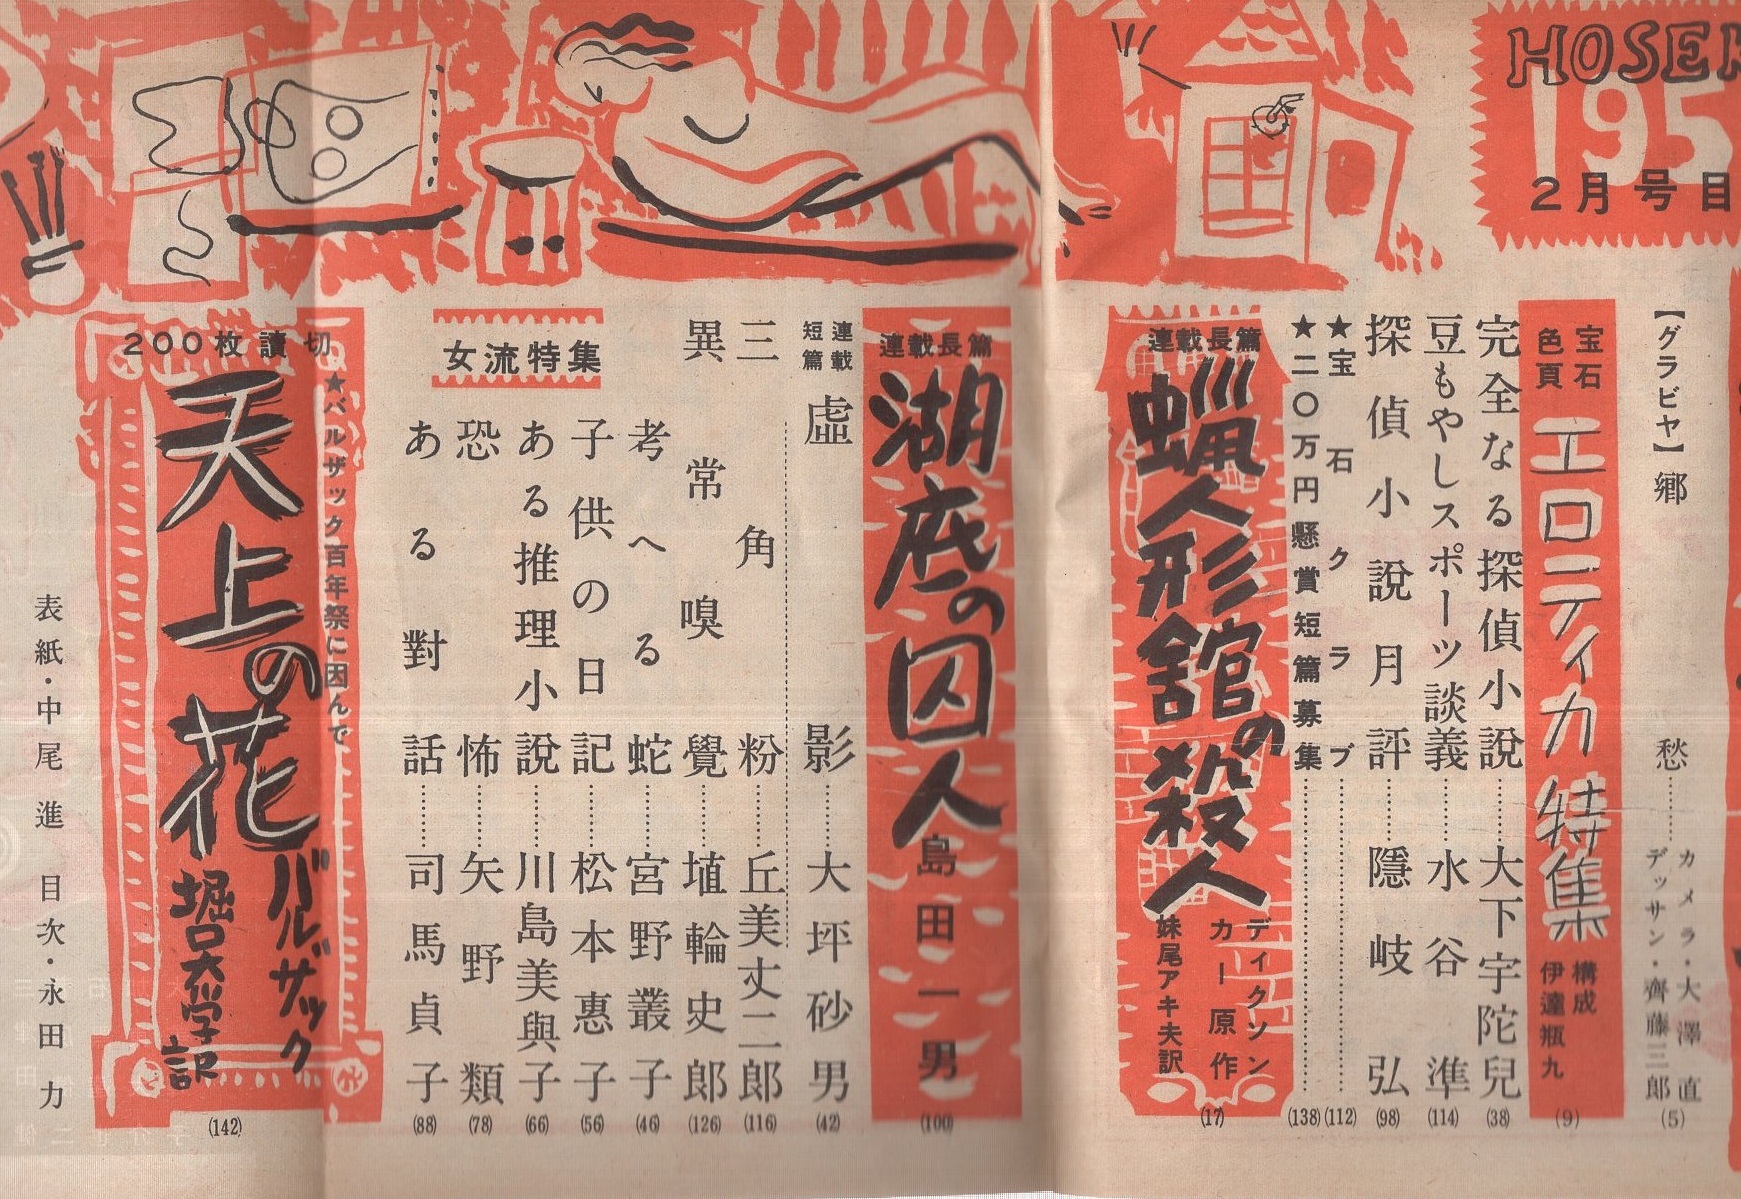 HOSEK
195
2月号目
【グラビヤ】郷愁……カメラ・大澤直
デッサン・齊藤三郎
(5)
宝石色頁
エロティカ特集
構成 伊達瓶九
(9)
完全なる探偵小説……大下宇陀兒
(38)
豆もやしスポーツ談義……水谷準
(114)
探偵小說月評……隱岐弘
(98)
★宝石クラブ……
(112)
★二〇万円懸賞短篇募集……
(138)
連載長篇
蝋人形館の殺人
ディクソン
カー原作
妹尾アキ夫訳
(17)
連載長篇
湖底の囚人
島田一男
(100)
連載短篇
虛影……大坪砂男
(42)
三角粉……丘美丈二郎
(116)
異常嗅覺……埴輪史郎
(126)
女流特集
考へる蛇……宮野叢子
(46)
子供の日記……松本惠子
(56)
ある推理小說……川島美與子
(66)
恐怖……矢野類
(78)
ある對話……司馬貞子
(88)
200枚讀切
★バルザック百年祭に因んで
天上の花
バルザック
堀口大学訳
(142)
表紙・中尾進 目次・永田力